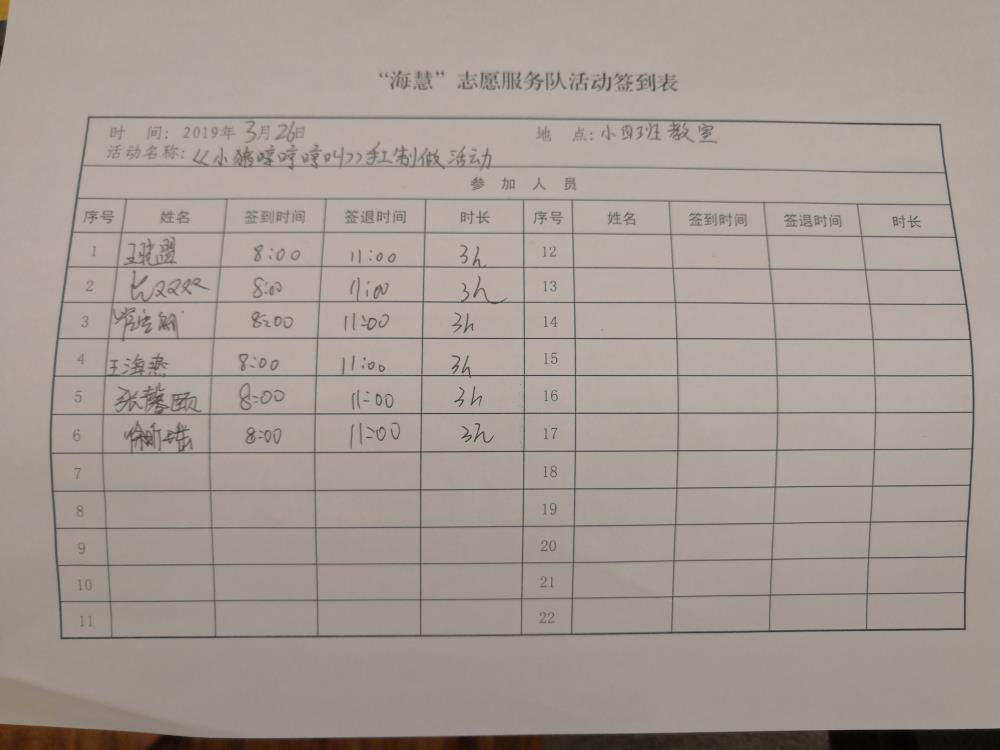 “海慧”志愿服务队活动签到表
时 间: 2019年 3月 26日 地 点: 小四班教室
活动名称: 《小猪哼哼哼叫》手工制做活动
参 加 人 员
序号 姓名 签到时间 签退时间 时长 序号 姓名 签到时间 签退时间 时长
1 8:00 11:00 3h 12
2 8:00 11:00 3h 13
3 8:00 11:00 3h 14
4 王海燕 8:00 11:00 3h 15
5 张馨颐 8:00 11:00 3h 16
6 徐昕瑶 8:00 11:00 3h 17
7 18
8 19
9 20
10 21
11 22